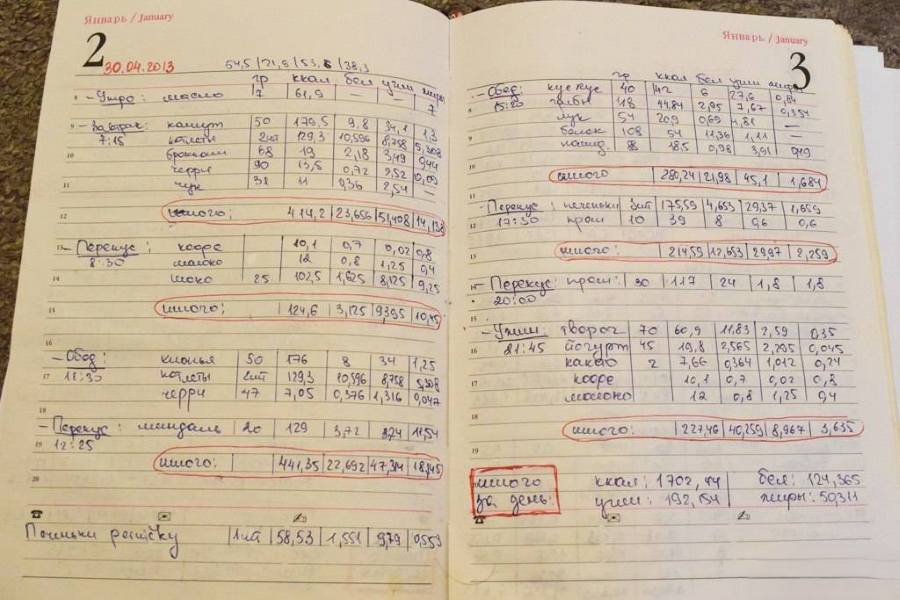 Январь / January
2
30.04.2013
54,5 / 21,8 / 53,5 / 38,3
гр ккал бел угли жиры
8 - Утро: масло 7 61,9 — — 7
9 - Завтрак: камут 50 179,5 9,8 34,1 1,3
7:15 котлеты 2шт 129,3 10,596 8,758 5,308
10 брокколи 68 19 2,18 3,49 0,44
черри 90 13,5 0,72 2,52 0,09
11 лук 32 11 0,36 2,54 —
12 итого: 414,2 23,656 51,408 14,138
13 - Перекус: кофе 10,1 0,7 0,02 0,8
8:30 молоко 12 0,8 1,25 0,4
14 шоко 25 102,5 1,625 8,125 9,25
15 итого: 124,6 3,125 9,395 10,45
16
- Обед: киноа 50 176 8 34 1,25
17 11:30 котлеты 2шт 129,3 10,596 8,758 5,308
черри 47 7,05 0,376 1,316 0,047
18
- Перекус: миндаль 20 129 3,72 3,24 11,54
19 12:25
итого: 441,35 22,692 47,314 18,145
20
1шт 58,53 1,551 9,79 0,553
Январь / January
3
гр ккал бел угли жиры
8 - Обед: кускус 40 142 6 27,6 0,84
15:20 грибы 118 44,84 2,95 7,67 0,354
9 лук 54 20,9 0,69 4,81 —
белок 108 54 11,36 1,11 —
10 8 18,5 0,98 3,91 0,49
11 итого 280,24 21,98 45,1 1,684
- Перекус: печеньки 3шт 175,59 4,653 29,37 1,659
12 17:30 прот 10 39 8 0,6 0,6
13 итого: 214,59 12,653 29,97 2,259
- Перекус: прот: 30 117 24 1,8 1,8
20:00
15
- Ужин: творог 70 60,9 11,83 2,59 0,35
16 21:45 йогурт 45 19,8 2,565 2,295 0,045
какао 2 7,66 0,364 1,012 0,24
17 кофе 10,1 0,7 0,02 0,8
молоко 12 0,8 1,25 0,4
18
итого: 227,46 40,259 8,967 3,635
19
итого ккал: 1702,44 бел: 124,365
за день: угли: 192,154 жиры: 50,311